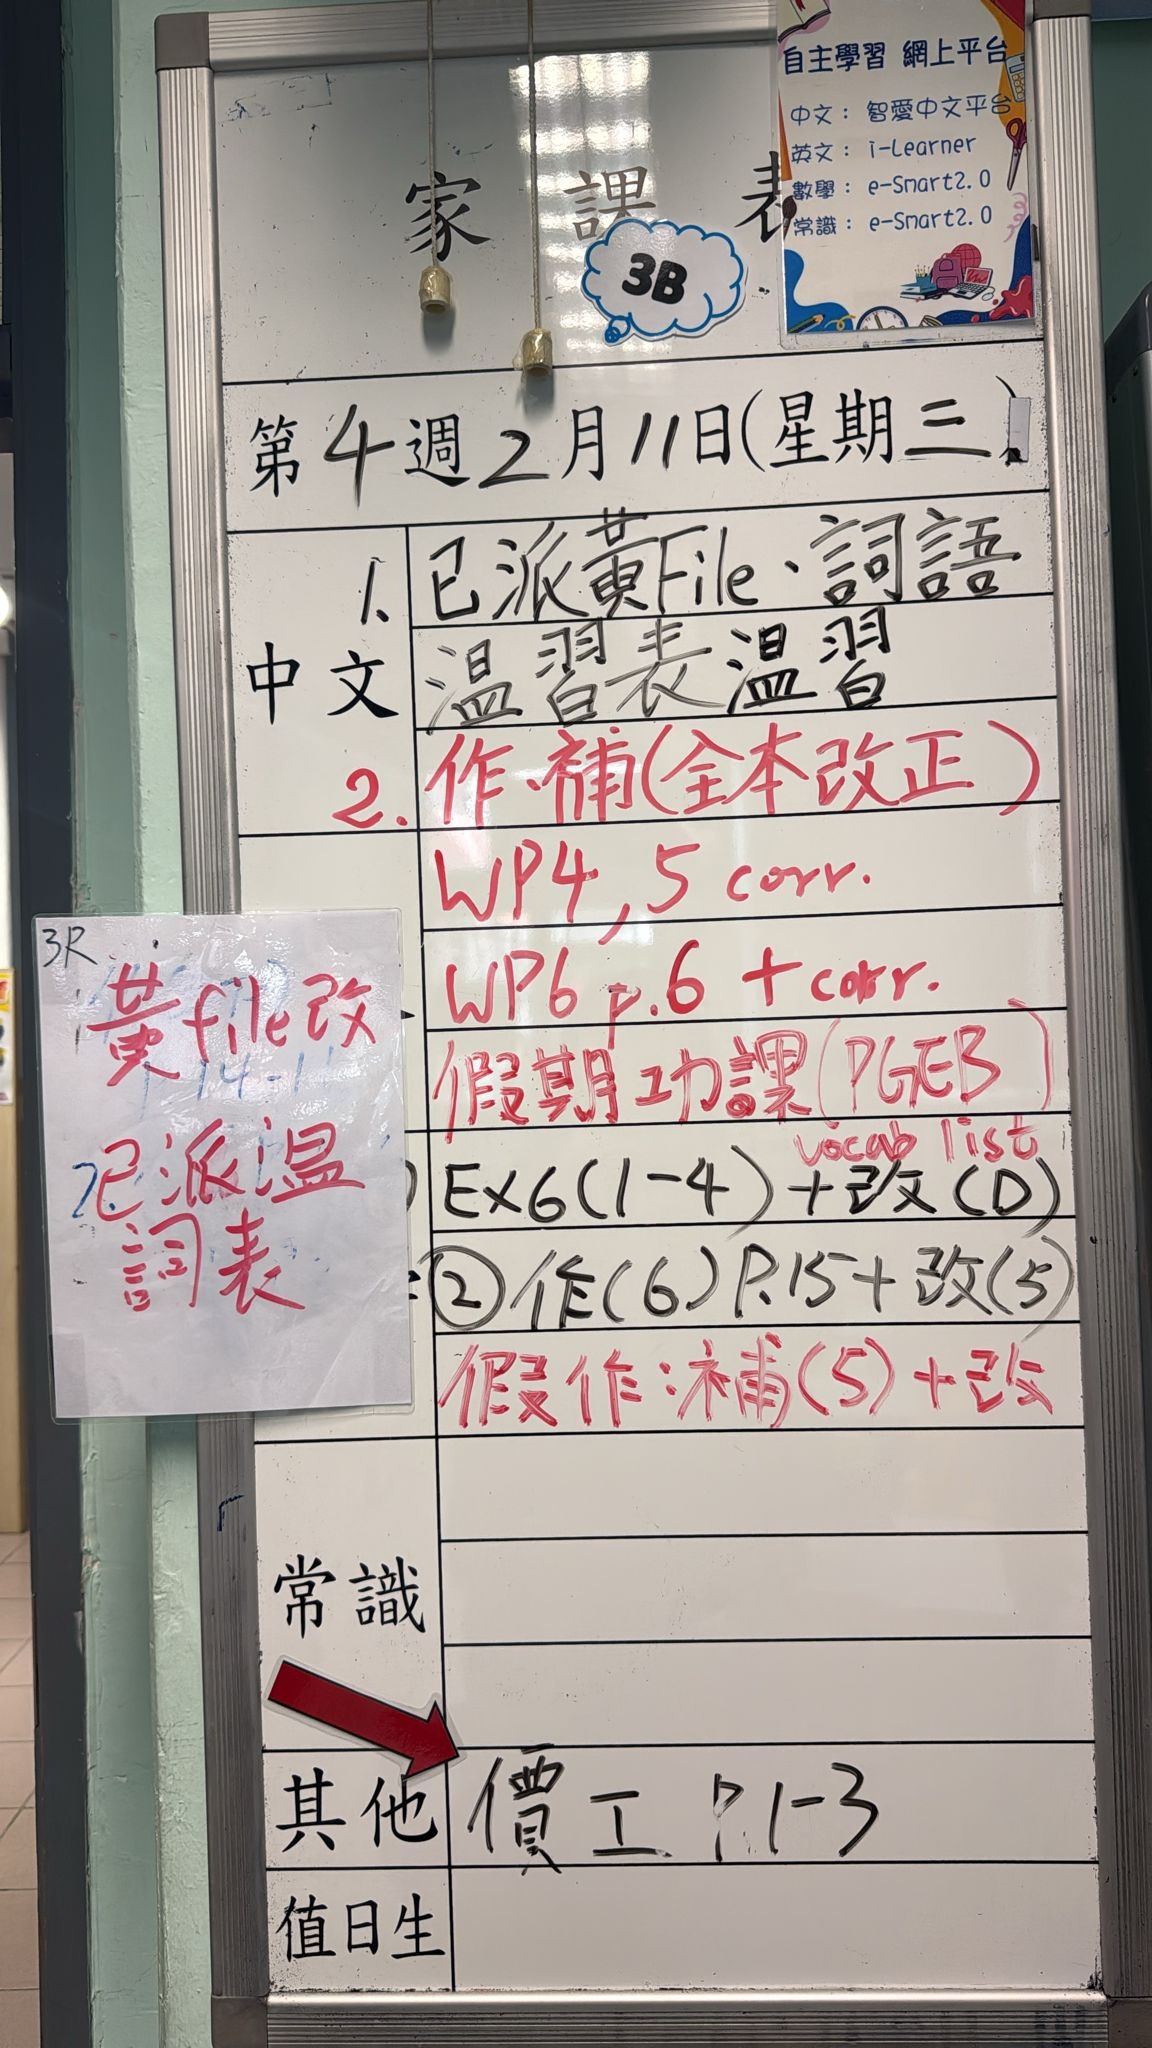 自主學習 網上平台
中文： 智愛中文平台
英文： i-Learner
數學： e-Smart2.0
常識： e-Smart2.0
家課表
3B
第4週2月11日(星期三)
中文
1. 已派黃File、詞語
溫習表溫習
2. 作、補(全本改正)
WP4, 5 corr.
WP6 p.6 + corr.
假期功課(PGEB
vocab list
Ex6(1-4)+改(D)
②作(6)P.15+改(5)
假作:補(5)+改
3R
黃file改
已派溫
詞表
常識
其他
價工 P.1-3
值日生